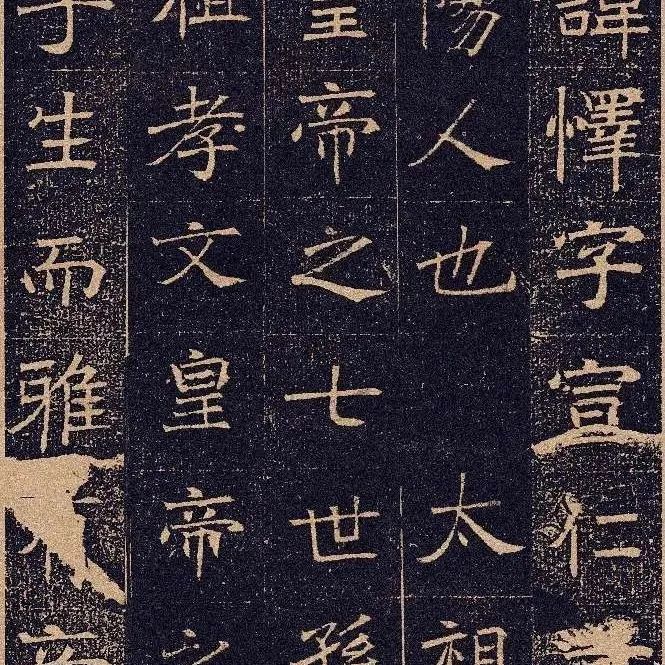 諱懌字宣仁
陽人也太祖
皇帝之七世孫
祖孝文皇帝之
子生而雅